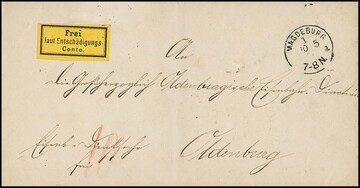 Frei
laut Entschädigungs-
Conto.
MAGDEBURG
1 5
a
7-8 N.
An
die Großherzoglich Oldenburgische Eisenbahn-Direction
Oldenburg